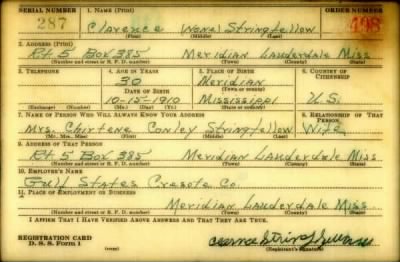 SERIAL NUMBER 1. NAME (Print) ORDER NUMBER
287 Clarence (None) Stringfellow 498
(First) (Middle) (Last)
2. ADDRESS (Print)
Rt 5 Box 385 Meridian Lauderdale Miss
(Number and street or R. F. D. number) (Town) (County) (State)
3. TELEPHONE 4. AGE IN YEARS 5. PLACE OF BIRTH 6. COUNTRY OF CITIZENSHIP
30 Meridian
DATE OF BIRTH (Town or county)
10-15-1910 Mississippi U.S.
(Exchange) (Number) (Mo.) (Day) (Yr.) (State or country)
7. NAME OF PERSON WHO WILL ALWAYS KNOW YOUR ADDRESS 8. RELATIONSHIP OF THAT PERSON
Mrs. Conley Stringfellow Wife
(Mr., Mrs., Miss) (First) (Middle) (Last)
9. ADDRESS OF THAT PERSON
Rt 5 Box 385 Meridian Lauderdale Miss
(Number and street or R. F. D. number) (Town) (County) (State)
10. EMPLOYER'S NAME
Gulf States Cresote Co.
11. PLACE OF EMPLOYMENT OR BUSINESS
Meridian Lauderdale Miss
(Number and street or R. F. D. number) (Town) (County) (State)
I AFFIRM THAT I HAVE VERIFIED ABOVE ANSWERS AND THAT THEY ARE TRUE.
REGISTRATION CARD
D. S. S. Form 1 (Registrant's signature)